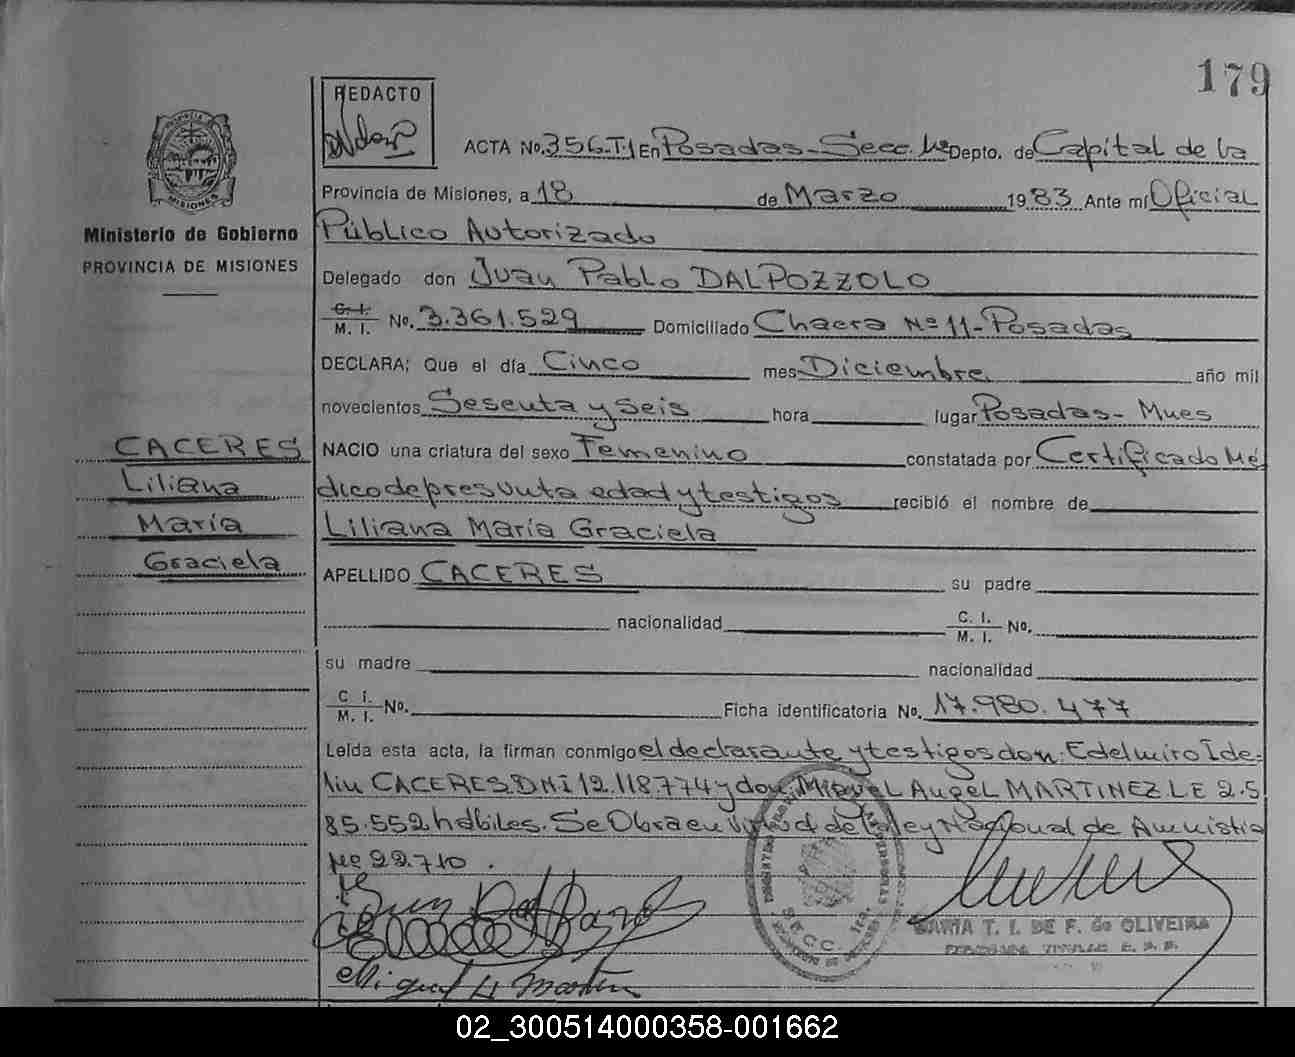 179
REDACTO
ACTA No. 356.T.1 En Posadas - Secc. 1ª Depto. de Capital de la
Provincia de Misiones, a 18 de Marzo 1983 Ante mí Oficial
Público Autorizado
Ministerio de Gobierno
PROVINCIA DE MISIONES
Delegado don Juan Pablo DALPOZZOLO
C. I.
M. I. No. 3.361.529 Domiciliado Chacra Nº 11 - Posadas
DECLARA; Que el día Cinco mes Diciembre año mil
novecientos Sesenta y Seis hora lugar Posadas - Mnes
NACIO una criatura del sexo Femenino constatada por Certificado Mé
dico de presunta edad y testigos recibió el nombre de
Liliana María Graciela
CACERES
Liliana
María
Graciela
APELLIDO CACERES su padre
nacionalidad C. I.
M. I. No.
su madre nacionalidad
C. I.
M. I. No. Ficha identificatoria No. 17.980.477
Leída esta acta, la firman conmigo el declarante y testigos don: Edelmiro Ide-
lin CACERES D.N.I 12.118.774 y don Miguel Angel MARTINEZ L.E 2.5
85.552 hábiles. Se Obra en virtud de la Ley Nacional de Amnistia
Nº 22.710.
Juan Dal Pozzolo
Miguel A Martinez
T. I. DE F. de OLIVEIRA
02_300514000358-001662